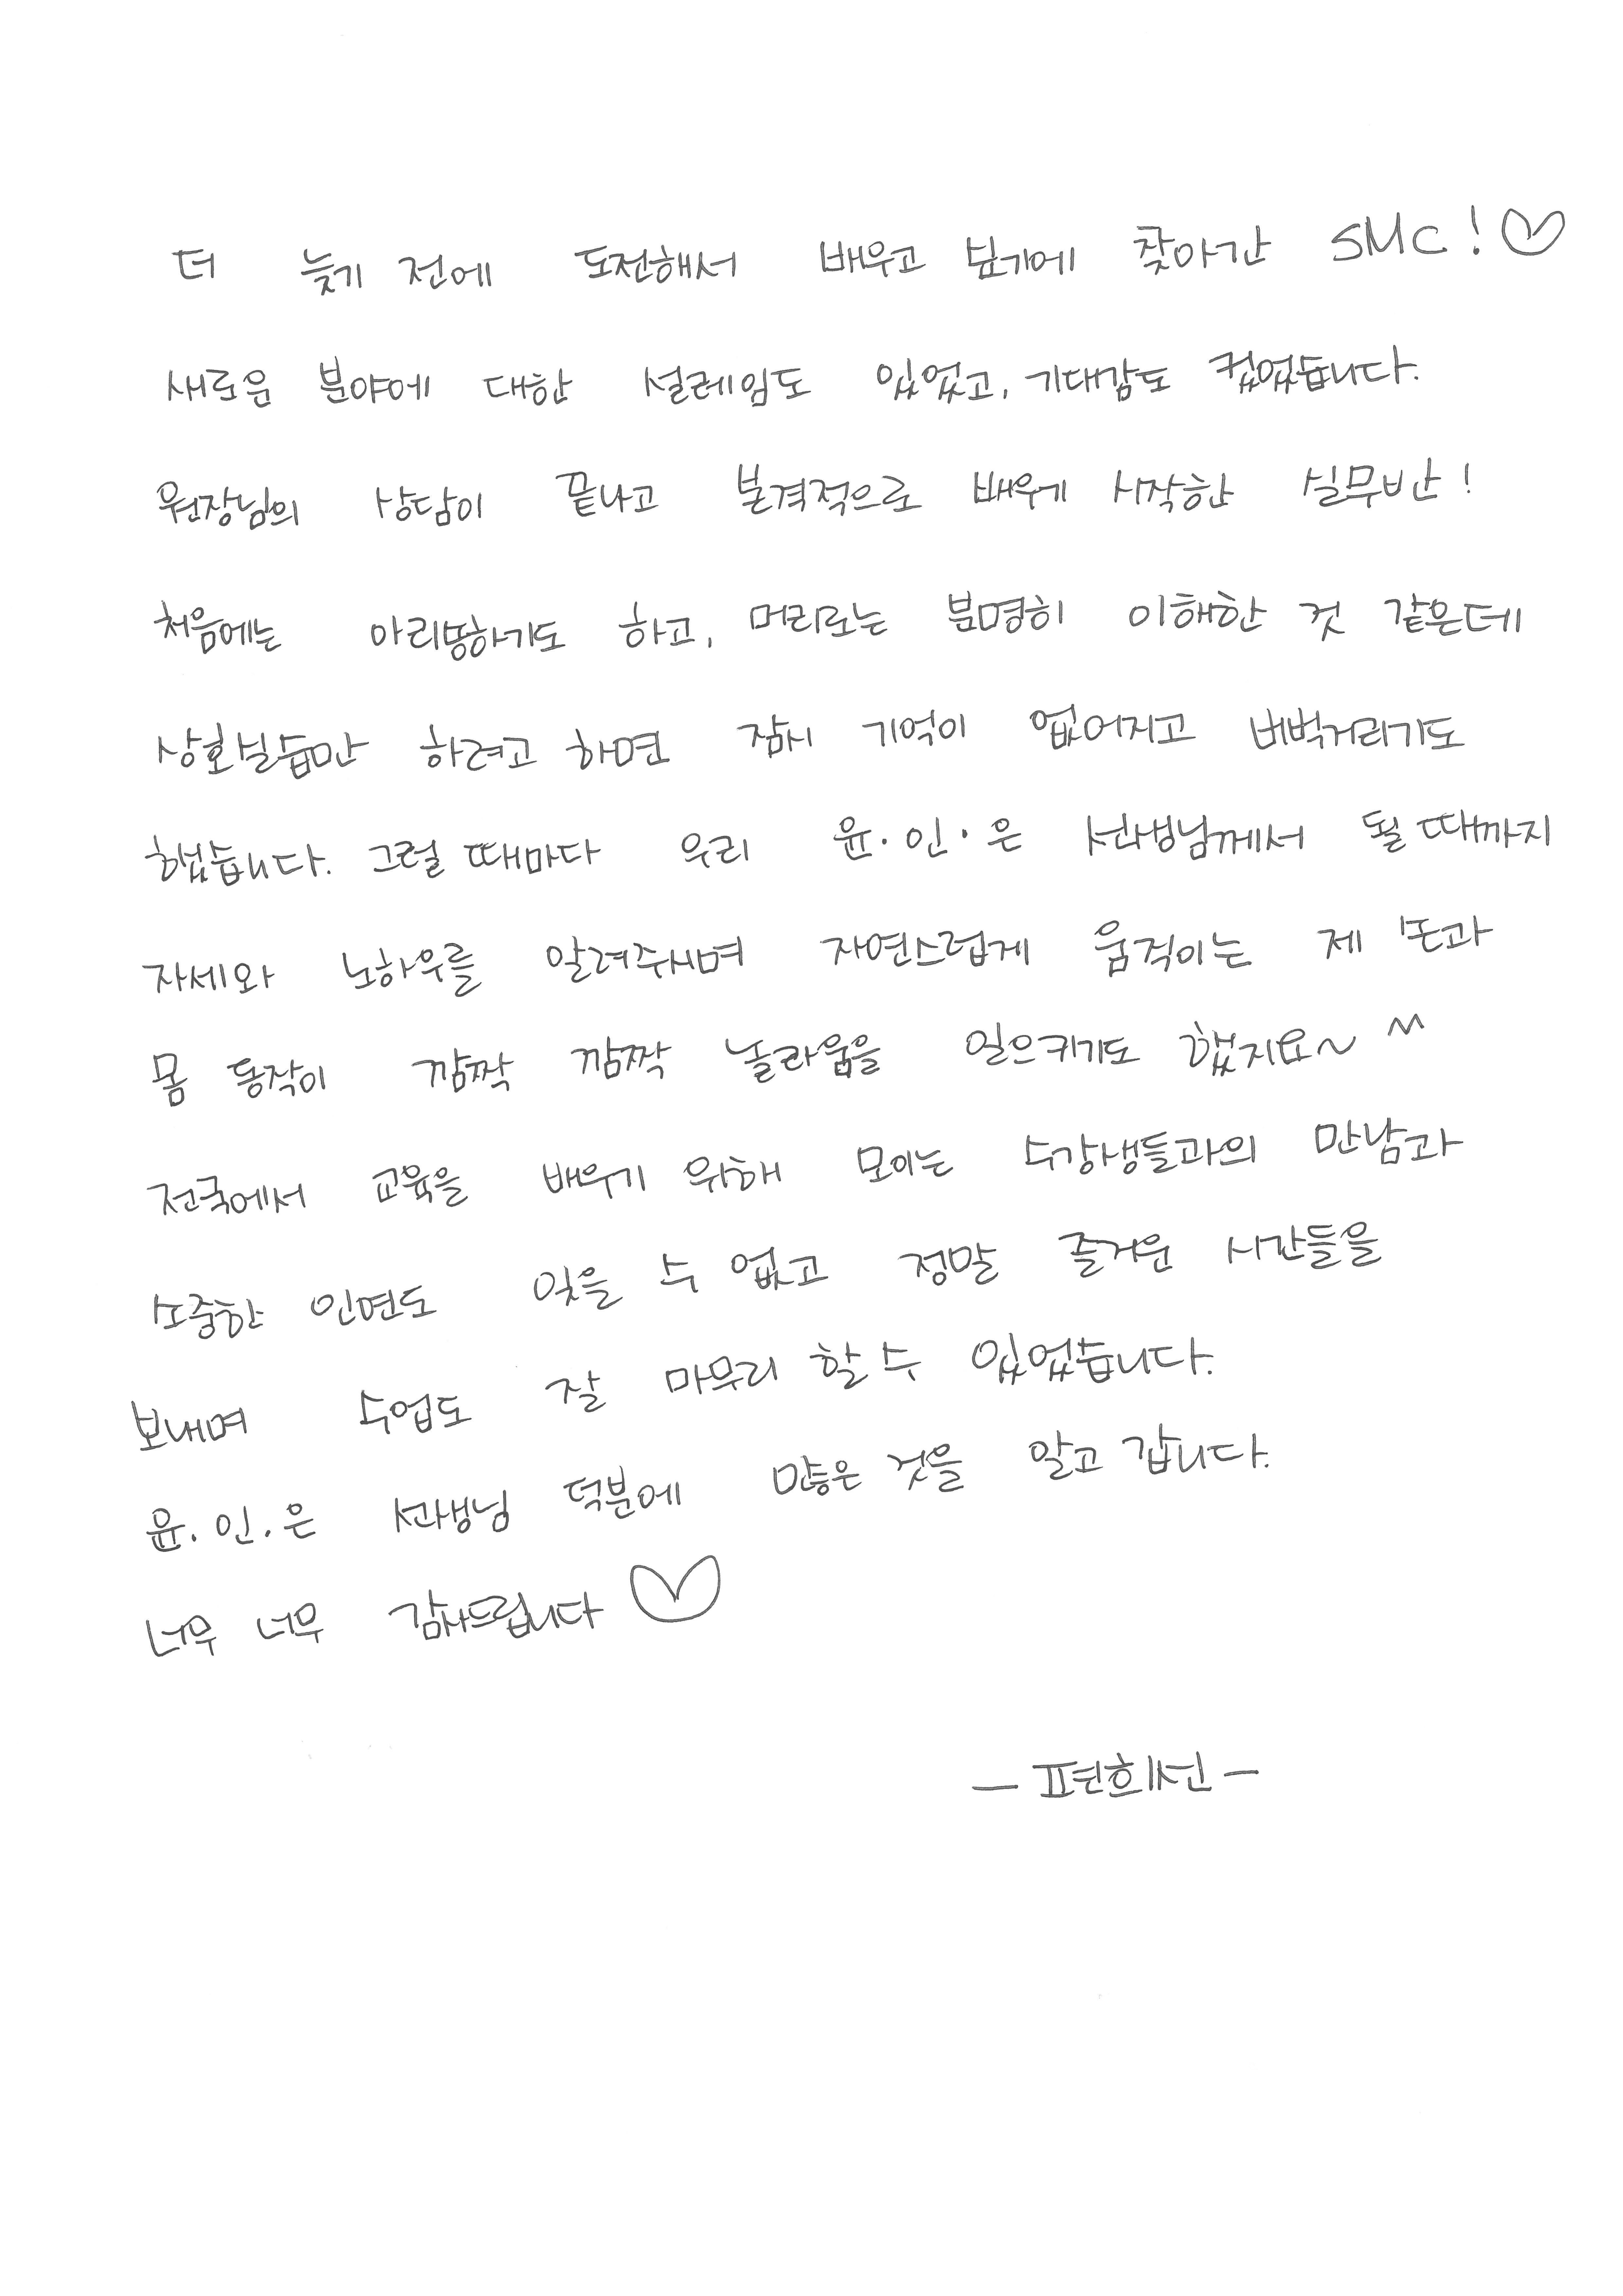 더 늦기 전에 도전해서 배우고 싶기에 찾아간 SMC!♡
새로운 분야에 대한 설레임도 있었고, 기대감도 컸었습니다.
원장님의 상담이 끝나고 본격적으로 배우게 시작한 실무반!
처음에는 아리땅하기도 하고, 머리로는 분명히 이해한 것 같은데
상호실습만 하려고 하면 잠시 기억이 없어지고 버벅거리기도
했습니다. 그럴 때마다 우리 윤·인·은 선생님께서 될 때까지
자세와 노하우를 알려주시며 자연스럽게 움직이는 제 손과
몸 동작이 깜짝 깜짝 놀라움을 일으키기도 했지요~ ^^
전국에서 교육을 배우기 위해 모이는 수강생들과의 만남과
소중한 인연도 잊을 수 없고 정말 즐거운 시간들을
보내며 수업도 잘 마무리 할 수 있었습니다.
윤.인.은 선생님 덕분에 많은 것을 알고 갑니다.
너무 너무 감사드립니다 ♡
- 편희선 -